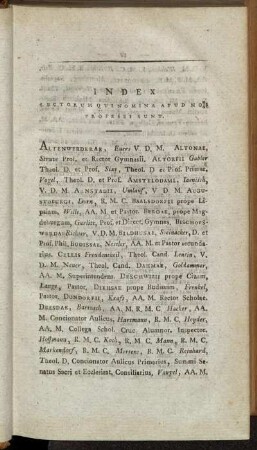 INDEX
LECTORUM QUI NOMINA APUD NOS
PROFESSI SUNT.
ALTENWERDERAE, Evers V. D. M. ALTONAE,
Struve Prof. et Rector Gymnasii, ALTORFII Gabler
Theol. D. et Prof. Sixt, Theol. D et Prof. Primar.
Vogel, Theol. D. et Prof. AMSTELODAMI,
V. D. M. ARNSTADII, Umlauff, V. D M. AUGU-
STOBURGI, Dorn, R. M. C. BAALSDORFII prope Li-
psiam, Wille, AA. M. et Pastor. BERGAE, prope Mag-
deburgum, Gurlitt, Prof. et Direct. Gymnas, BISCHOFS-
WERDA Richter, V. D. M. BUDISSAE, Nestler, AA. M. et Pastor secunda-
rius. CELLIS Theol. Cand.
D. M. Meyer, Theol. Cand. DAHMAE, Goldammer,
AA. M. Superintendens DESCHWITII prope Cizam,
Lange, Pastor, DIEHSAE prope Budissam, Frenkel,
Pastor, DONDORFII, Kraft, AA. M. Rector Scholae.
DRESDAE, Barnack, AA. M R. M. C. Hacker, AA.
M. Concionator Aulicus, Hartmann, R. M. C. Heyder,
AA. M. Collega Schol. Cruc. Alumnor. Inspector.
Hoffmann, R. M. C. Koch, R. M. C. Mann, R. M. C.
Markendorf, R. M. C. Mertens, R. M. C. Reinhard,
Theol. D. Concionator Aulicus Primarius, Summi Se-
natus Sacri et Ecclesiast. Consiliarius, Vangel, AA. M.